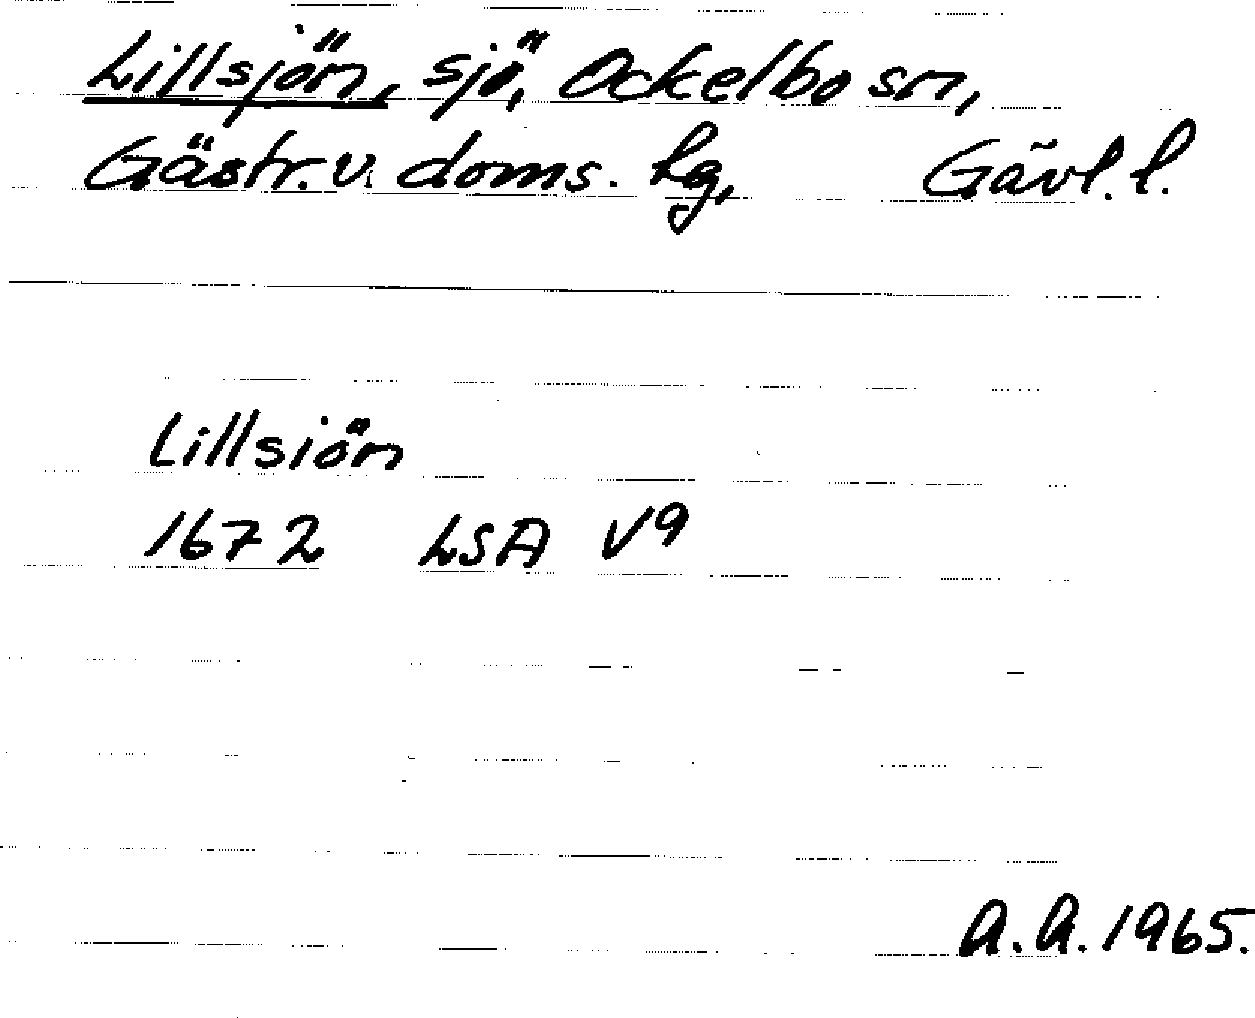 Lillsjön, sjö, Ockelbo sn,
Gästr. v. doms. hg, Gävl. l.
Lillsiön
1672 LSA V9
A. A. 1965.